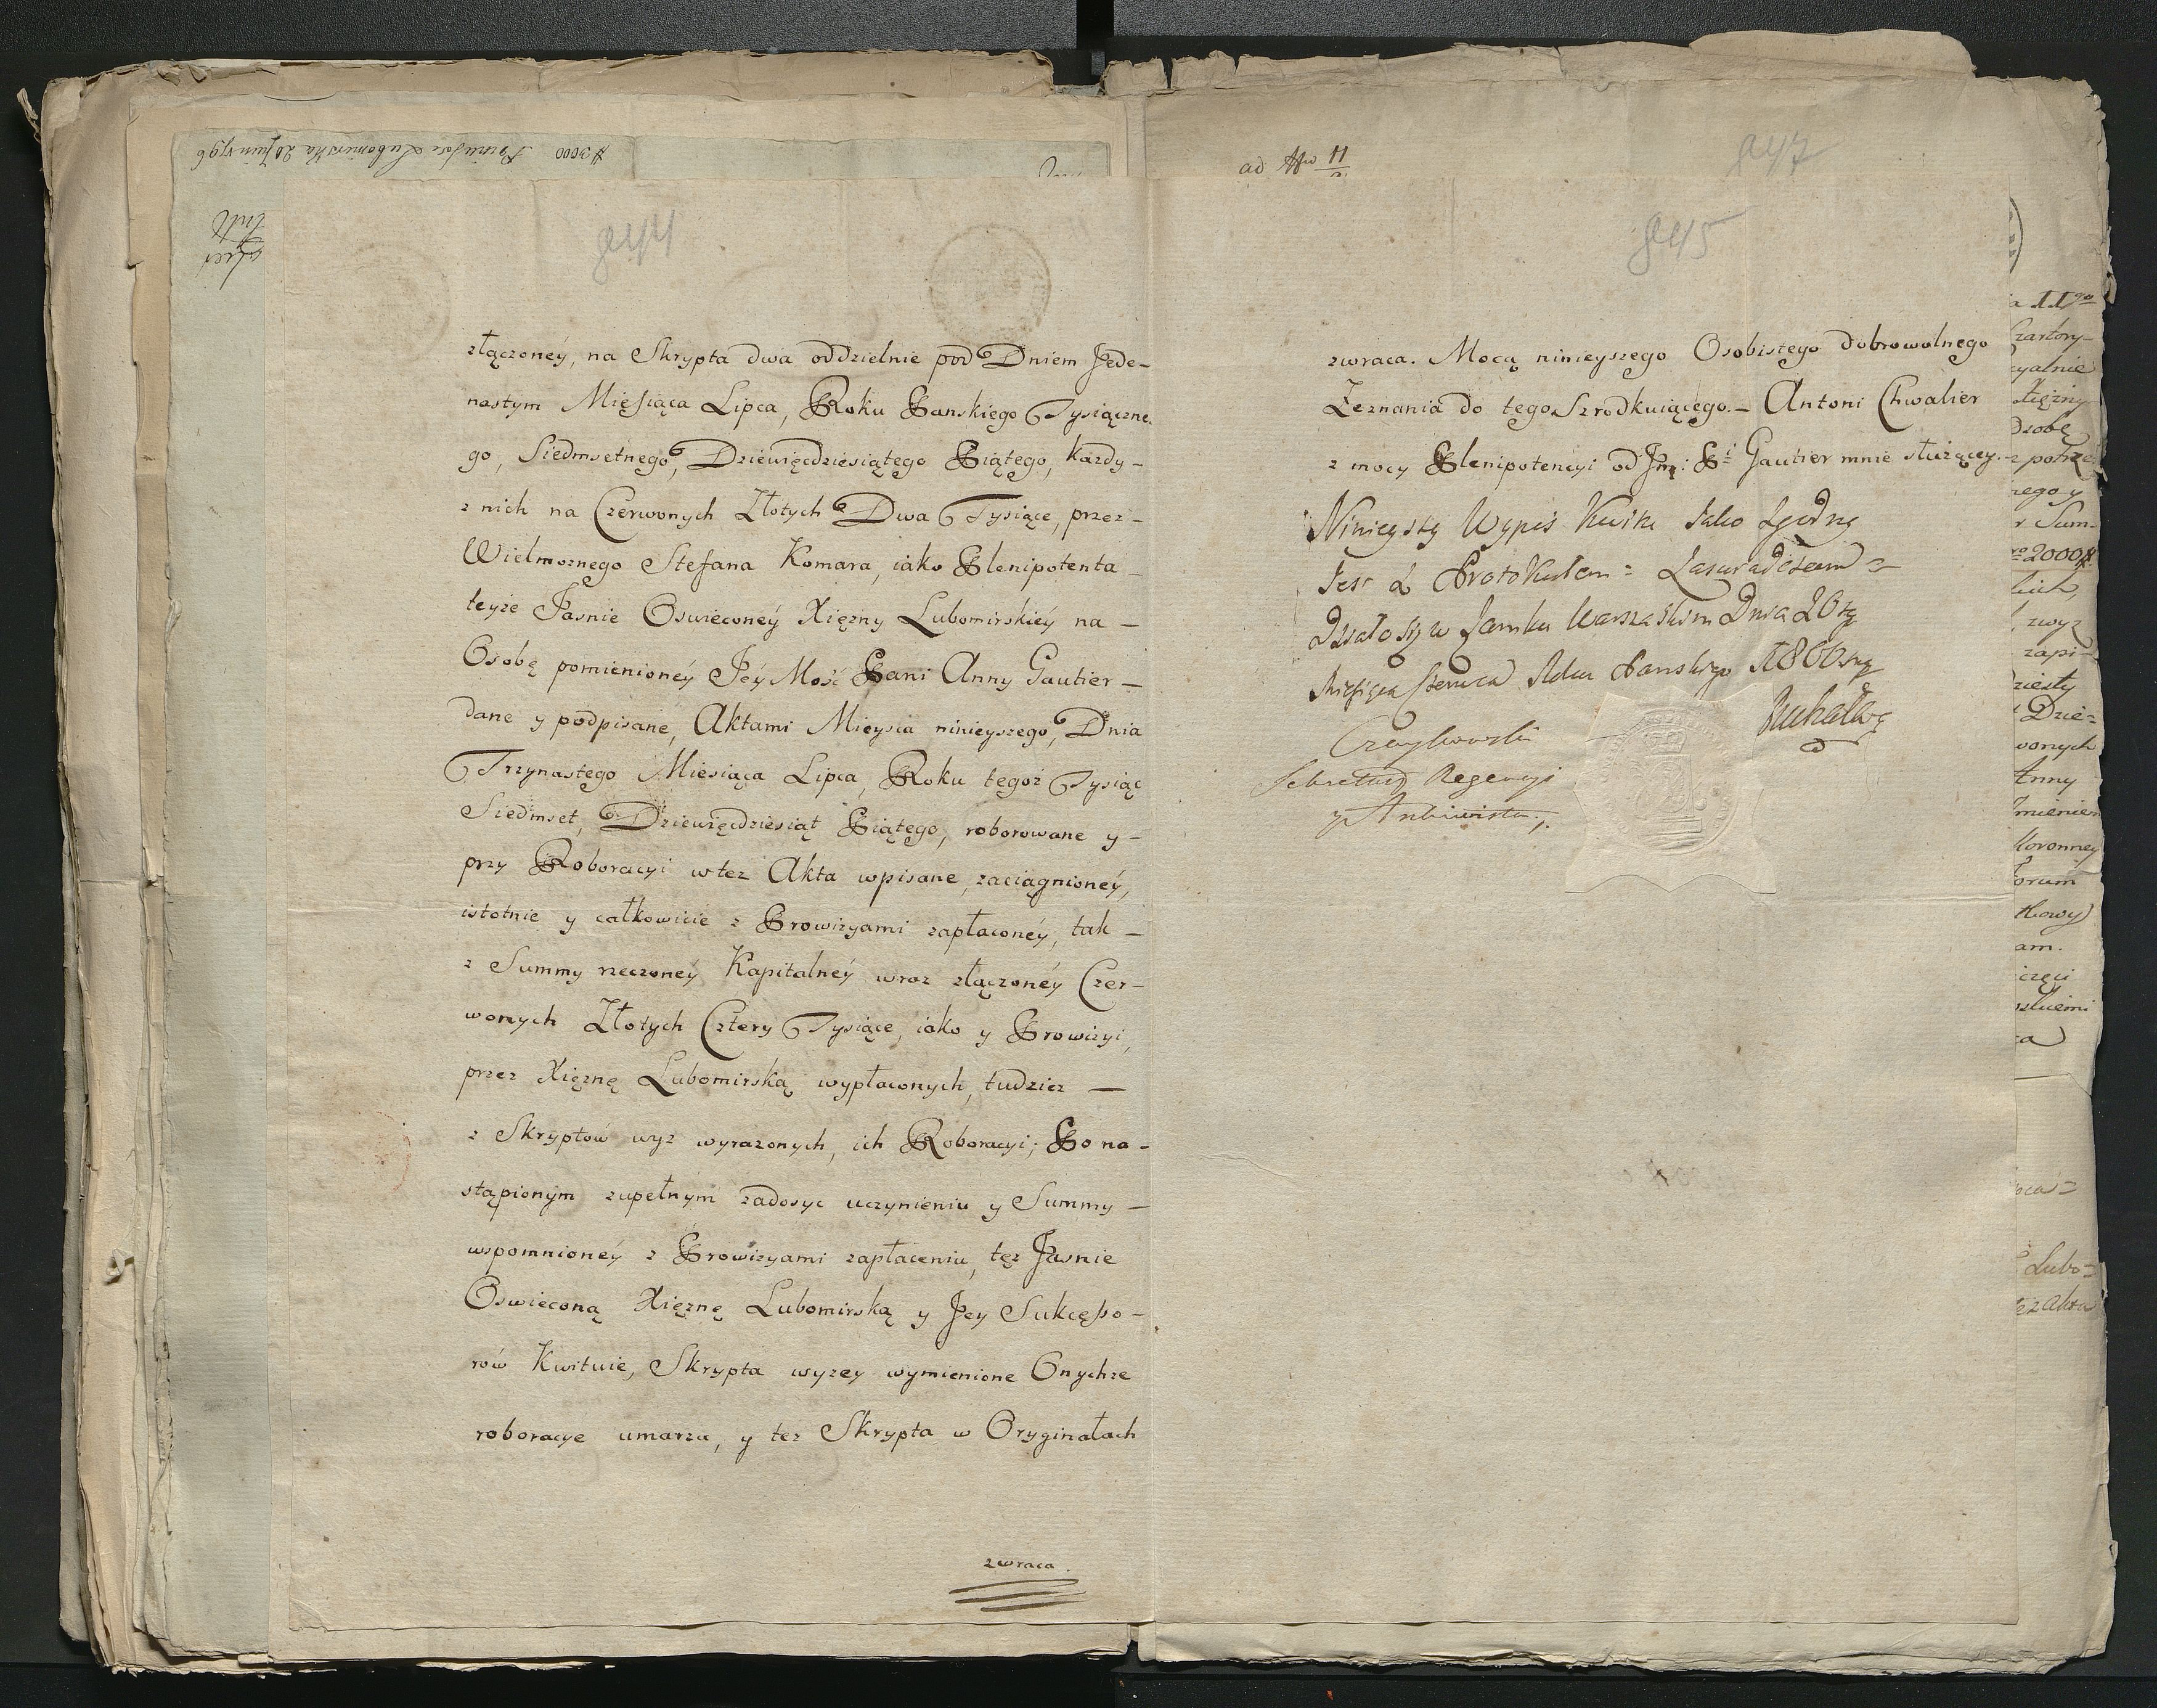 № 3000 Princesse Lubomirska 20 Juin 1796
844
złączoney, na Skrypta dwa oddzielnie pod Dniem Jede-
nastym Miesiąca Lipca, Roku Panskiego Tysiączne-
go, Siedmsetnego, Dziewięcdziesiątego Piątego, każdy-
z nich na Czerwonych Złotych Dwa Tysiące, przez-
Wielmoznego Stefana Komara, iako Plenipotenta-
teyże Jasnie Oswieconey Xięzny Lubomirskiey na-
Osobę pomienioney Jey Mość Pani Anny Gautier-
dane y podpisane, Aktami Mieysca ninieyszego, Dnia
Trzynastego Miesiąca Lipca, Roku tegoż Tysiąc
Siedmset, Dziewięcdziesiąt Piątego, roborowane y-
przy Roboracyi w tez Akta wpisane, zaciągnioney,
istotnie y całkowicie z Prowizyami zapłaconey, tak-
z Summy rzeczoney Kapitalney wraz złączoney Czer-
wonych Złotych Cztery Tysiące, iako y Prowizyi,
przez Xięznę Lubomirską wypłaconych, tudziez-
z Skryptow wyz wyrazonych, ich Roboracyi; Po na-
stąpionym zupełnym zadosyc uczynieniu y Summy-
wspomnioney z Prowizyami zapłaceniu, tęz Jasnie
Oswieconą Xięznę Lubomirską y Jey Sukcesso-
rów Kwituie, Skrypta wyzey wymienione Onychze
roboracye umarza, y tez Skrypta w Oryginałach
zwraca.
ad № 11
847
845
zwraca. Mocą ninieyszego Osobistego Dobrowolnego
Zeznania do tego Szrodkuiącego.- Antoni Chwalier
z mocy Plenipotencyi od Jmci Pi Gautier mnie służącey.-
Ninieyszy Wypis Kwitu Jako Zgodny
Jest z Protokułem = Zaswiadczam =
Działo się w Zamku Warszaskim Dnia 26tego
Miesiąca Czerwca Roku Panskiego 1800nego
Sekretarz Regencyi
y Archiwista